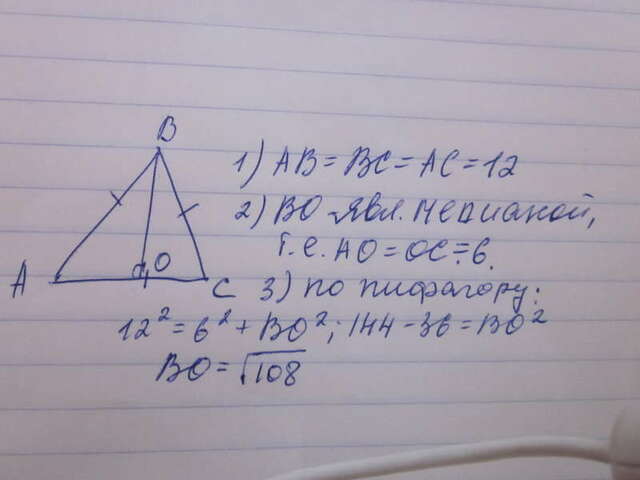 B
1) AB = BC = AC = 12
2) BO явл. медианой,
т.е. AO = OC = 6.
A O C
3) по пифагору:
12² = 6² + BO²; 144 - 36 = BO²
BO = √108